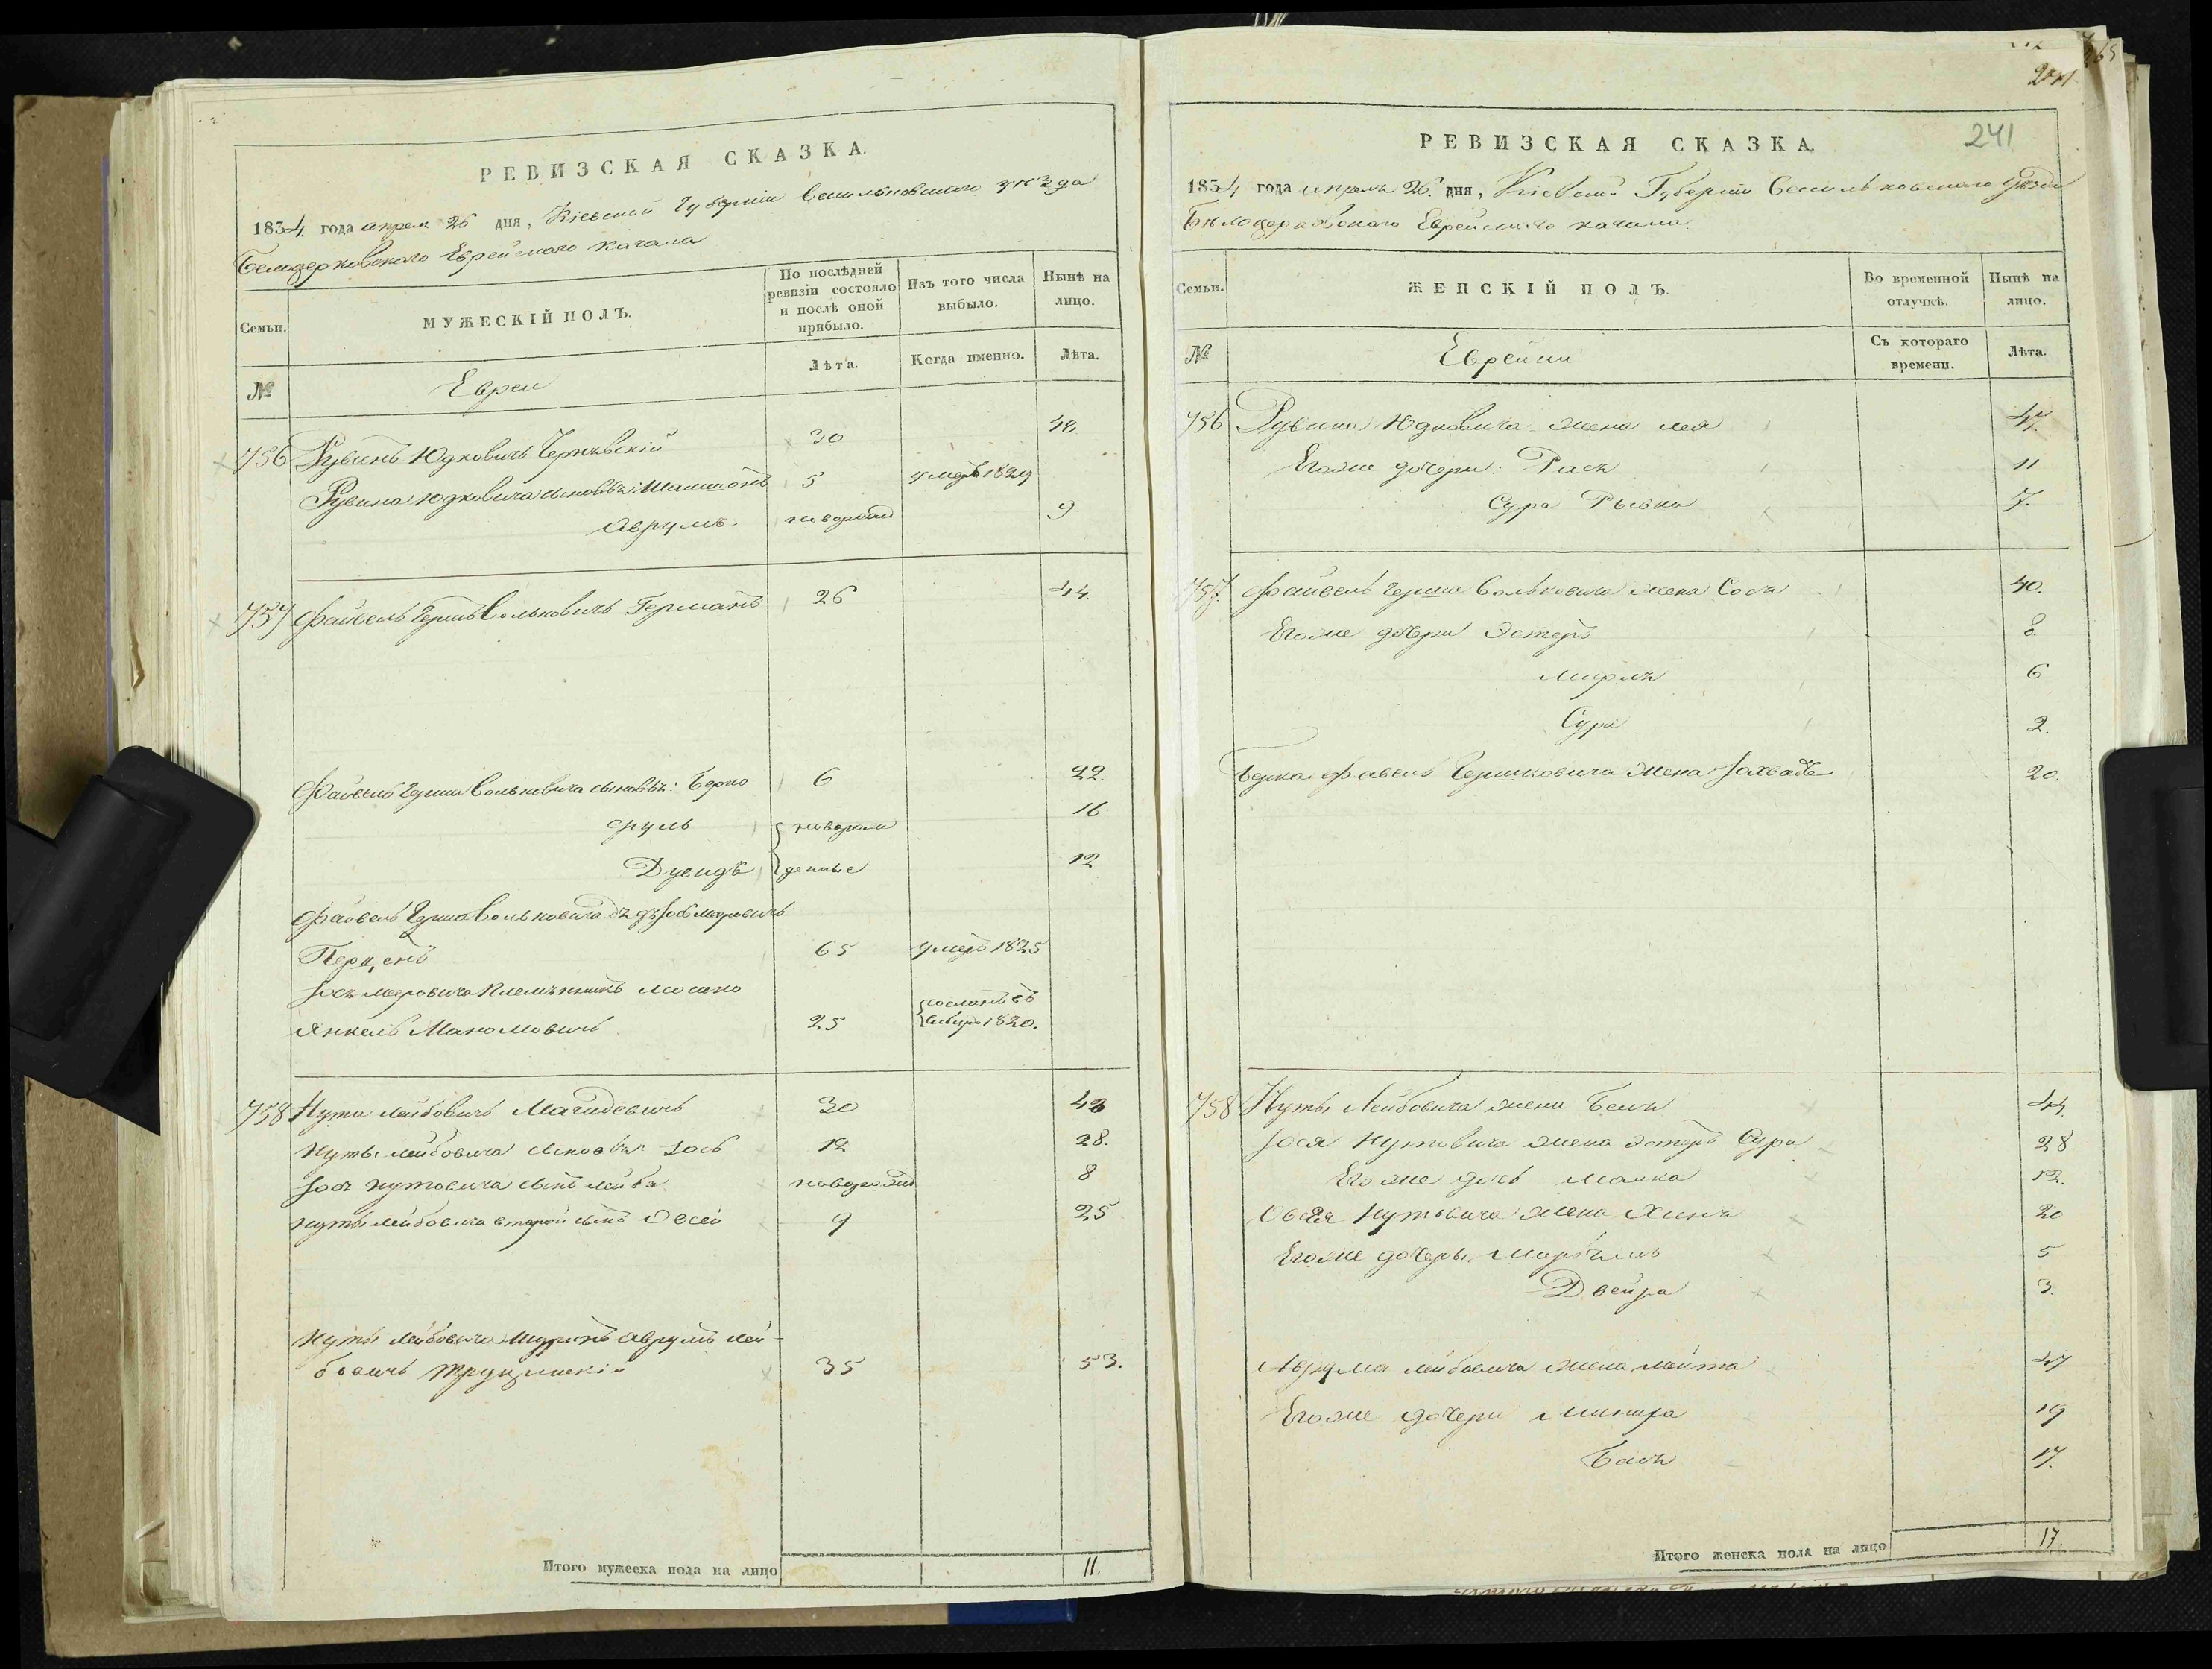 241
241
РЕВИЗСКАЯ СКАЗКА.
1834 года апреля 26 дня, Кіевской Губерніи Васильковскаго уезда
Белоцерковскаго Еврейскаго кагала
Семьи.
МУЖЕСКІЙ ПОЛЪ.
По послѣдней ревизіи состояло и послѣ оной прибыло.
Изъ того числа выбыло.
Нынѣ на лицо.
№
Евреи
Лѣта.
Когда именно.
Лѣта.
756 Рувинъ Юдковичъ 30 48
Рувина Юдковича сыновья: Шамшонъ 5 умеръ 1829
Аврумъ новорож 9
757 Файвель Гершъ Вольковичъ Германъ 26 44
Файвель Герша Вольковича сыновья: Берко 6 22
Сруль новорож 16
Дувидъ денные 12
Файвель Герша Вольковича Мееровичъ
65 умеръ 1825
Меировича племянникъ Мошко
Янкель 25 сосланъ въ
Сибирь 1820.
758 Нута Лейбовичъ Магидевичъ 30 48
Нуты Лейбовича сыновья: Iось 12 28.
Iося Нутовича сынъ Лейба новорожд 8
Нуты Лейбовича второй сынъ Овсей 9 25
Нуты Лейбовича Шуринъ Аврумъ Лей-
бовичъ 35 53.
Итого мужеска пола на лицо 11.
РЕВИЗСКАЯ СКАЗКА.
1834 года апреля 26. дня, Кіевской Губерніи Васильковскаго уезда
Бѣлоцерковскаго Еврейскаго кагала.
Семьи.
ЖЕНСКІЙ ПОЛЪ.
Во временной отлучкѣ.
Нынѣ на лицо.
№
Еврейки
Съ котораго времени.
Лѣта.
756 Рувина Юдковича жена Лея 47
Егоже дочери: Рися 11
Сура Рывка 7.
757. Файвель Герша Вольковича жена Сося 40.
Егоже дочери Эстеръ 8.
Мирля 6
Сура 2.
Берка Файвель Гершковича жена 20.
758 Нуты Лейбовича жена Бейля 44.
Iося Нутовича жена Эстеръ Сура 28.
Егоже дочь Малка 12.
Овсея Нутовича жена Хиня 20
Егоже дочеры 5
Двейра 3.
Аврума Лейбовича жена 47
Егоже дочери 19
Бася 17.
Итого женска пола на лицо 17.